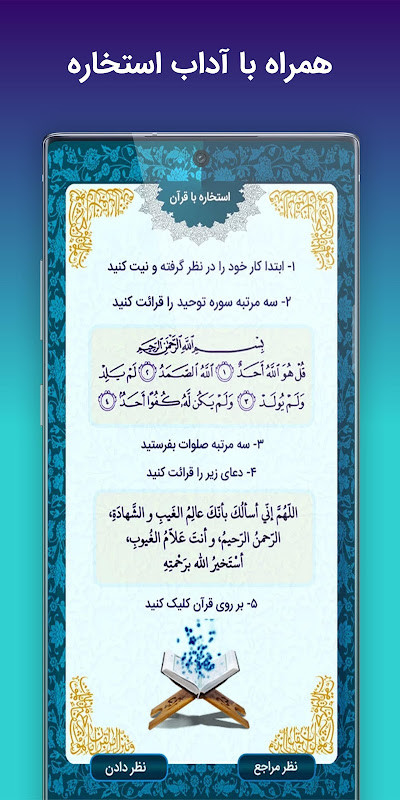 همراه با آداب استخاره
استخاره با قرآن
۱- ابتدا کار خود را در نظر گرفته و نیت کنید
۲- سه مرتبه سوره توحید را قرائت کنید
بِسْمِ اللَّهِ الرَّحْمَٰنِ الرَّحِيمِ
قُلْ هُوَ ٱللَّهُ أَحَدٌ ۝١ ٱللَّهُ ٱلصَّمَدُ ۝٢ لَمْ يَلِدْ
وَلَمْ يُولَدْ ۝٣ وَلَمْ يَكُن لَّهُۥ كُفُوًا أَحَدٌۢ ۝٤
۳- سه مرتبه صلوات بفرستید
۴- دعای زیر را قرائت کنید
اللَّهُمَّ إنّي أسألُكَ بأنّكَ عالِمُ الغَيبِ و الشَّهادَةِ،
الرّحمنُ الرّحيمُ، و أنتَ عَلاّمُ الغُيوبِ،
أسْتَخيرُ الله برَحْمَتِهِ
۵- بر روی قرآن کلیک کنید
نظر مراجع
نظر دادن